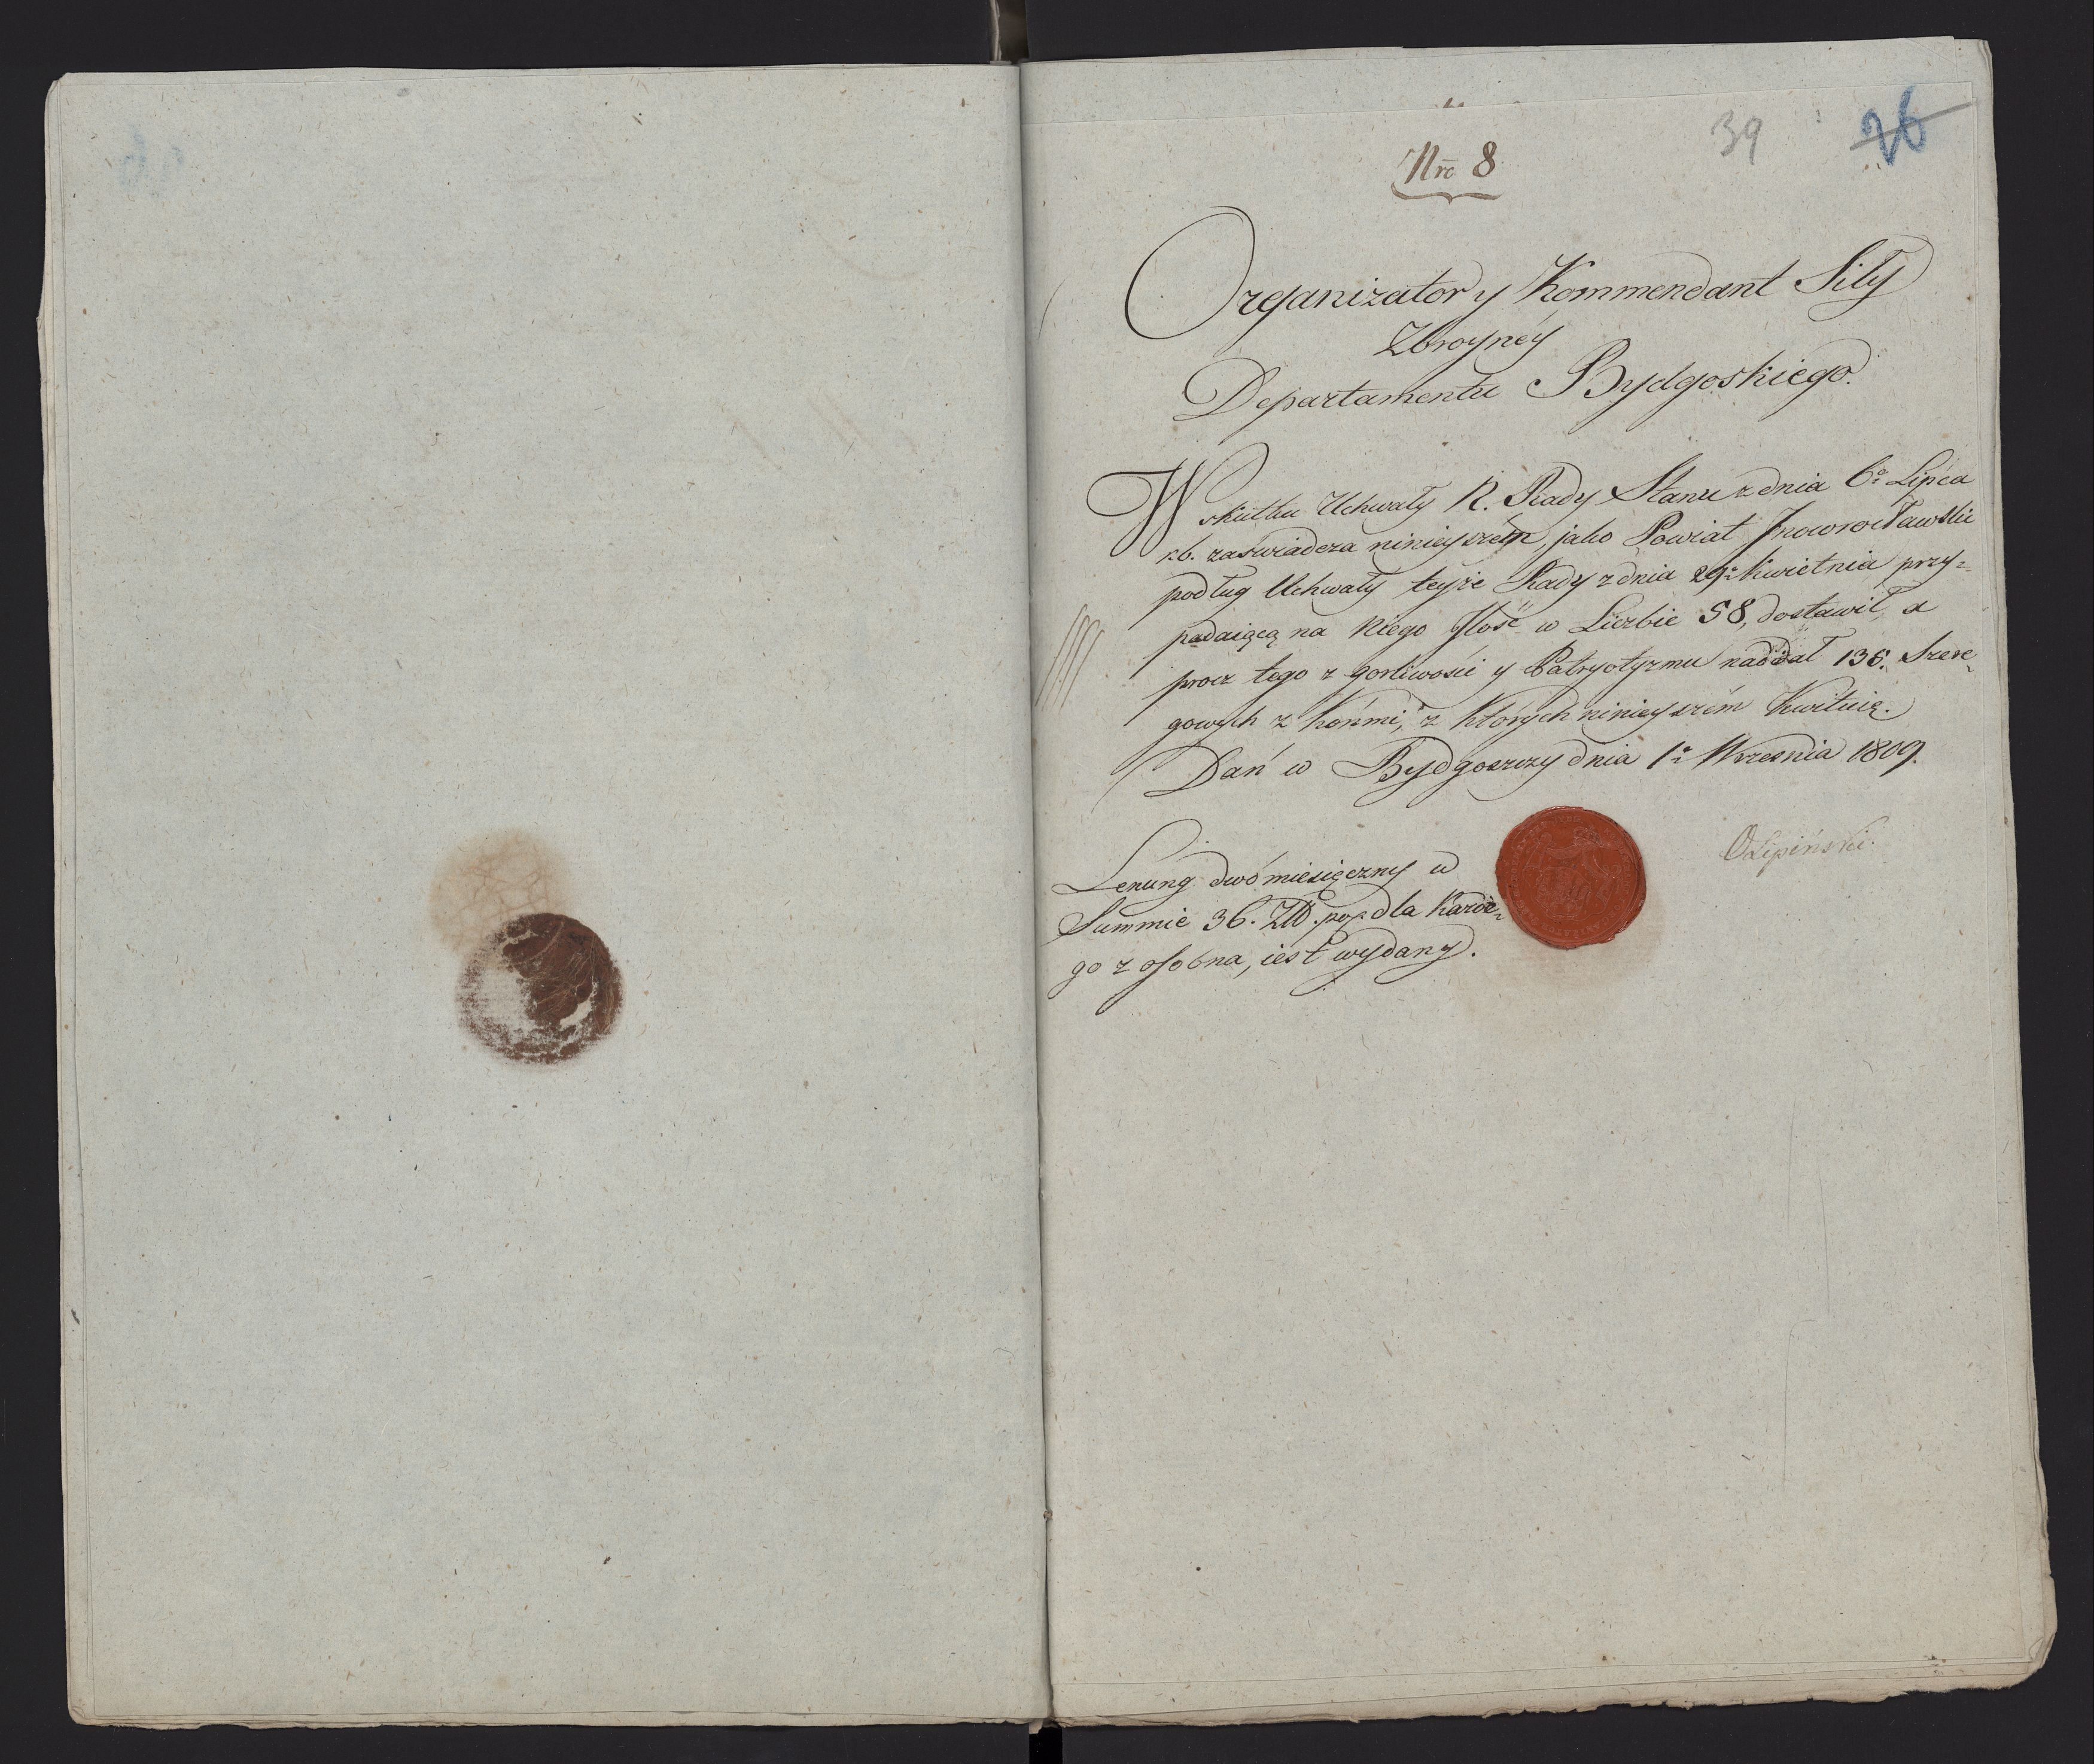 39 26
Nro 8
Organizator y Kommendant Siły
Zbroyney
Departamentu Bydgoskiego.
W skutku Uchwały R. Rady Stanu z dnia 6o Lipca
r.b. zaświadcza ninieyszém, jako Powiat Jnowrocławski
podług Uchwały teyże Rady z dnia 29o Kwietnia przy=
padaiącą na Niego Jlość w Liczbie 58, dostawił, a
procz tego z gorliwości y Patryotyzmu naddał 136. Szere=
gowych z Końmi, z których ninieyszém Kwituię.
Dań w Bydgoszczy dnia 1o Wrzesnia 1809.
OLipiński.
Lenung dwómiesięczny w
Summie 36. Złł. pol. dla Każde=
go z osobna, iest wydany.